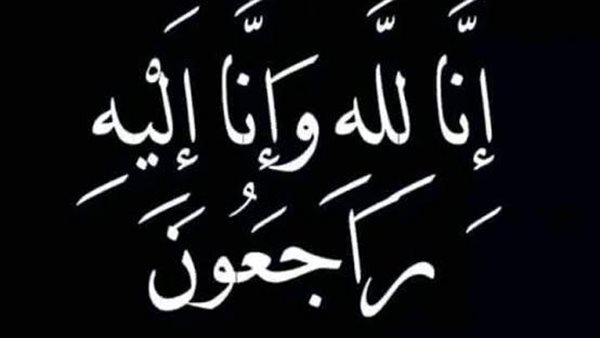 إِنَّا لله وَإنَّا إلَيْهِ
رَاجَعُونَ